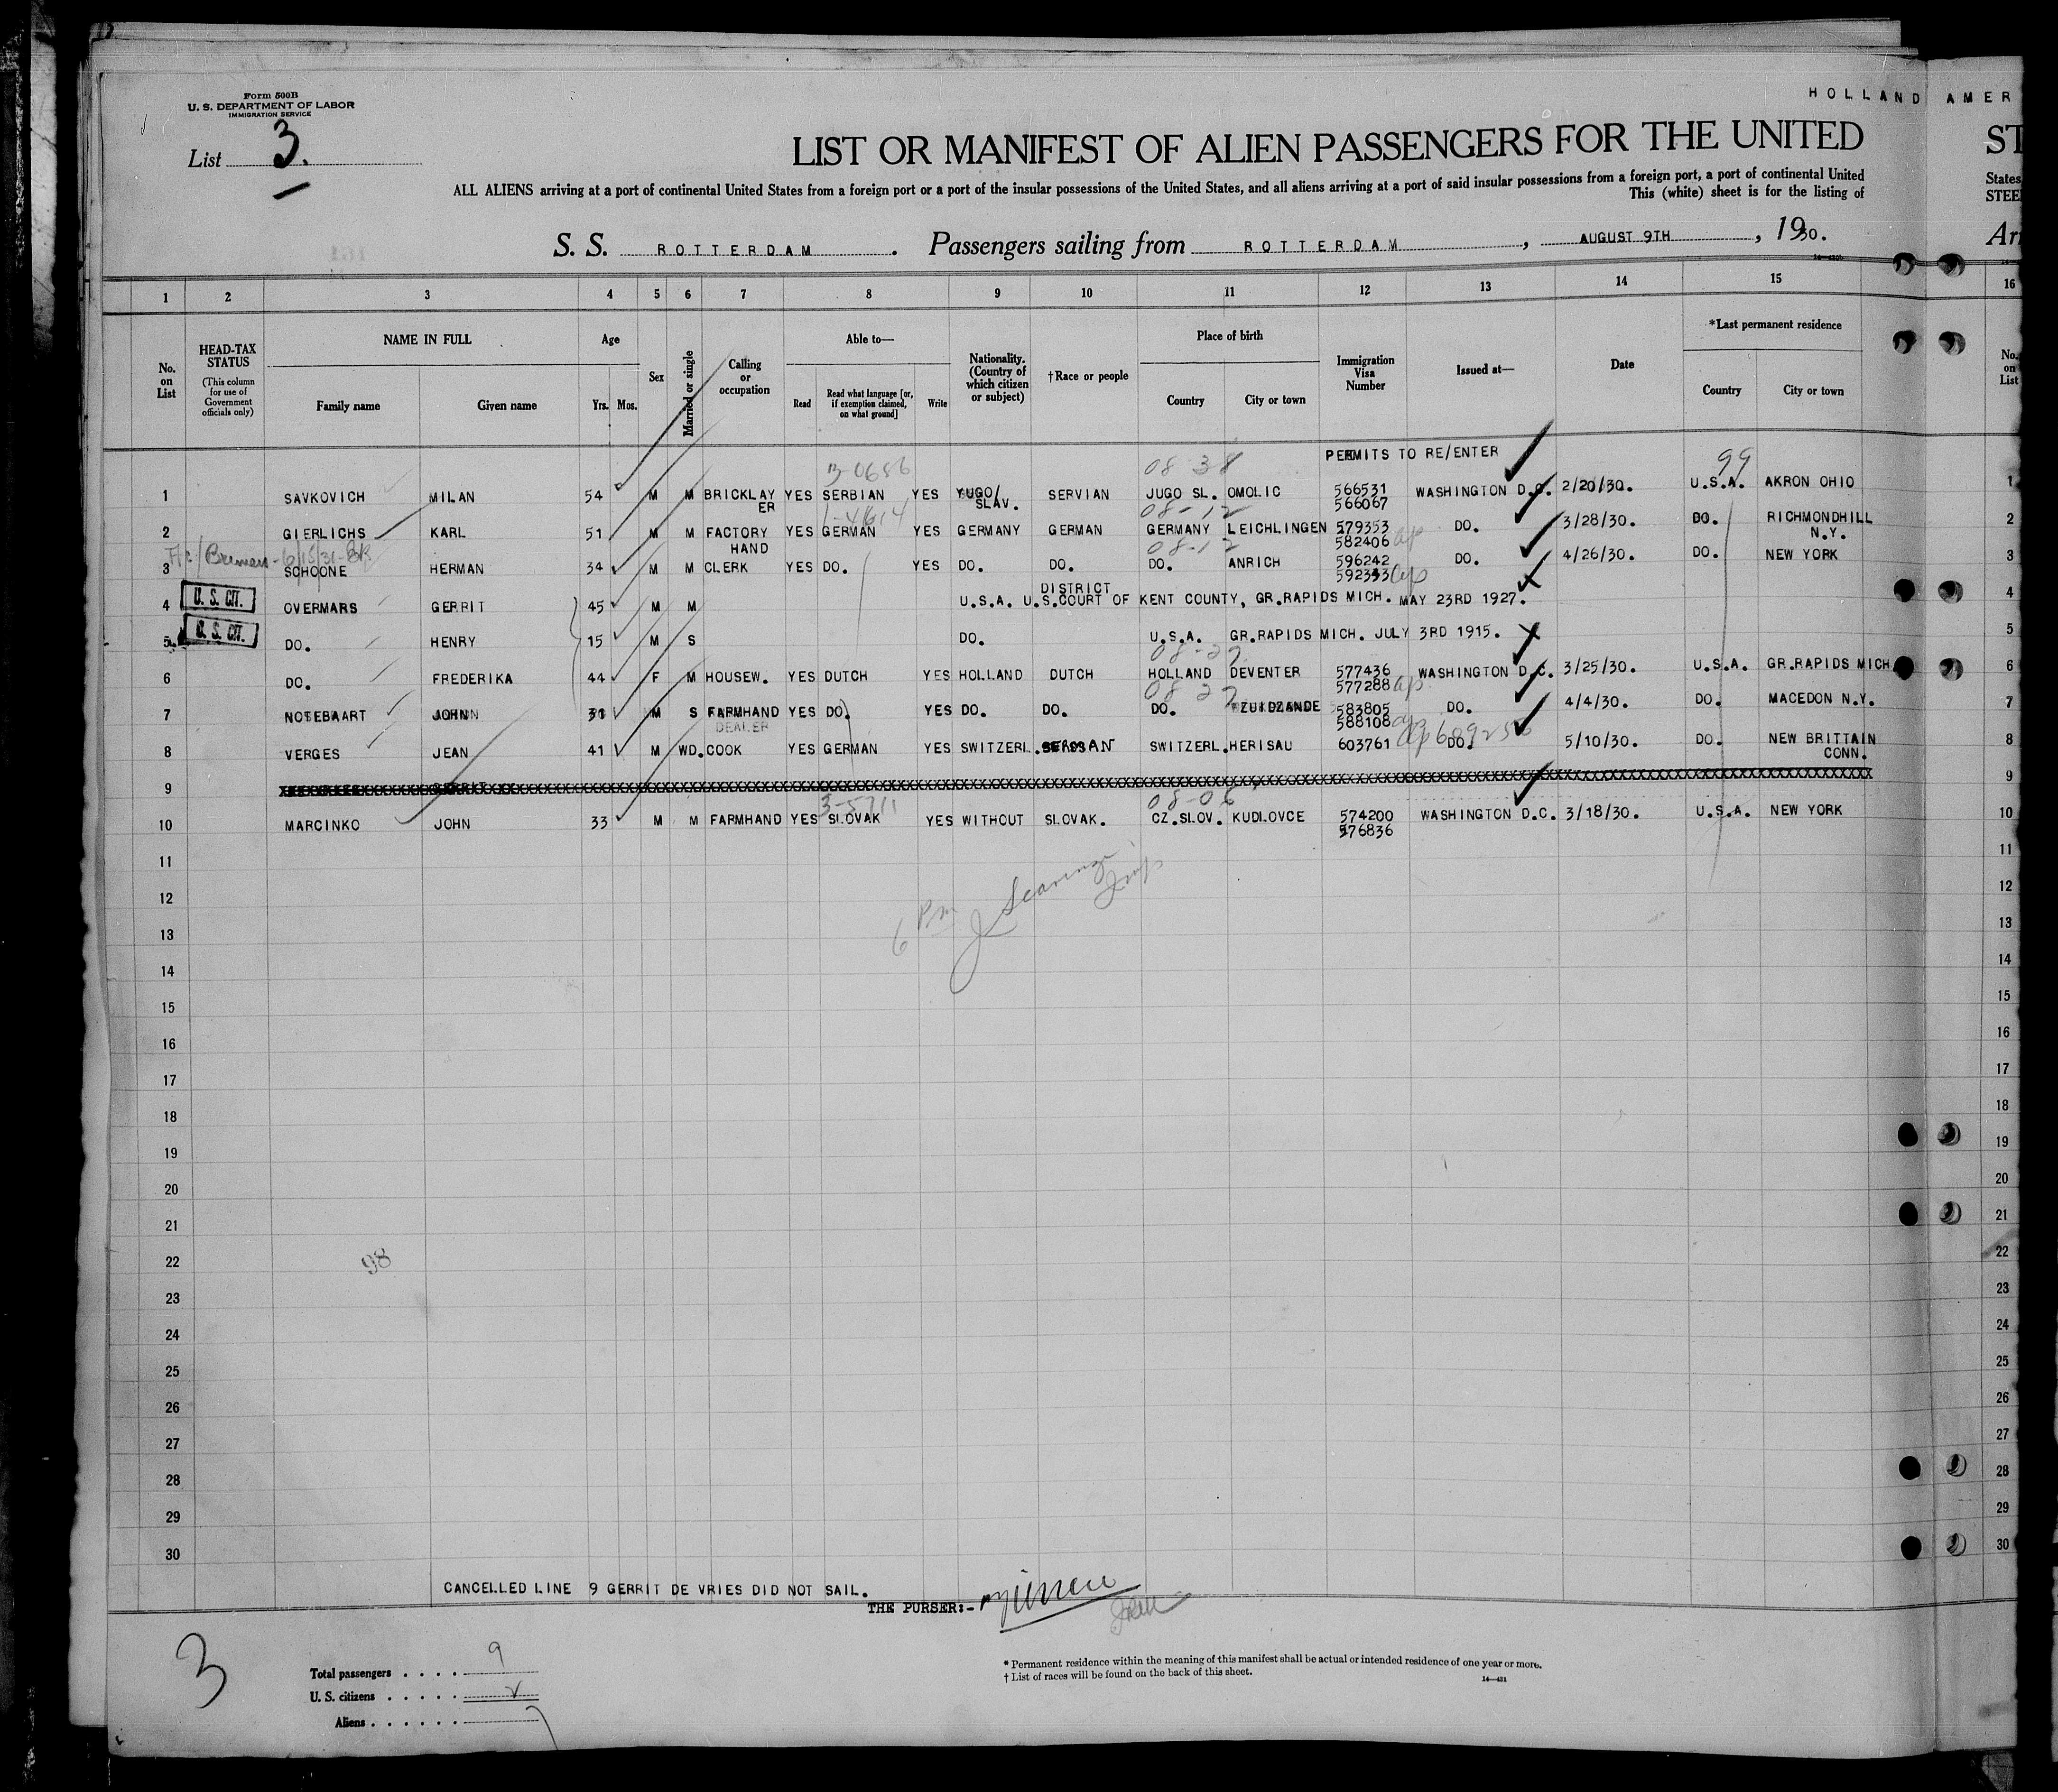 Form 500B
U. S. DEPARTMENT OF LABOR
IMMIGRATION SERVICE
List 3.
HOLLAND AMER
LIST OR MANIFEST OF ALIEN PASSENGERS FOR THE UNITED
ST
ALL ALIENS arriving at a port of continental United States from a foreign port or a port of the insular possessions of the United States, and all aliens arriving at a port of said insular possessions from a foreign port, a port of continental United
States
This (white) sheet is for the listing of
STEE
S. S. ROTTERDAM. Passengers sailing from ROTTERDAM, AUGUST 9TH, 1930.
Arr
1 2 3 4 5 6 7 8 9 10 11 12 13 14 15 16
No. on List
HEAD-TAX STATUS
(This column for use of Government officials only)
NAME IN FULL
Family name Given name
Age
Yrs. Mos.
Sex
Married or single
Calling or occupation
Able to—
Read Read what language [or, if exemption claimed, on what ground] Write
Nationality. (Country of which citizen or subject)
†Race or people
Place of birth
Country City or town
Immigration Visa Number
Issued at—
Date
*Last permanent residence
Country City or town
No. on List
PERMITS TO RE/ENTER
08 38 99
1 SAVKOVICH MILAN 54 M M BRICKLAYER YES SERBIAN YES YUGO/SLAV. SERVIAN JUGO SL. OMOLIC 566531 566067 WASHINGTON D.C. 2/20/30. U.S.A. AKRON OHIO 1
08-12
2 GIERLICHS KARL 51 M M FACTORY HAND YES GERMAN YES GERMANY GERMAN GERMANY LEICHLINGEN 579353 582406 DO. 3/28/30. DO. RICHMONDHILL N.Y. 2
Bremen
08-12
3 SCHOONE HERMAN 34 M M CLERK YES DO. YES DO. DO. DO. ANRICH 596242 592343 DO. 4/26/30. DO. NEW YORK 3
U. S. CIT.
DISTRICT
4 OVERMARS GERRIT 45 M M U.S.A. U.S.COURT OF KENT COUNTY, GR.RAPIDS MICH. MAY 23RD 1927. 4
U. S. CIT.
5 DO. HENRY 15 M S DO. U.S.A. GR.RAPIDS MICH. JULY 3RD 1915. 5
08-27
6 DO. FREDERIKA 44 F M HOUSEW. YES DUTCH YES HOLLAND DUTCH HOLLAND DEVENTER 577436 577288 WASHINGTON D.C. 3/25/30. U.S.A. GR.RAPIDS MICH. 6
08 27
7 NOTEBAART JOHN 31 M S FARMHAND YES DO. YES DO. DO. DO. ZUIDZANDE 583805 588108 DO. 4/4/30. DO. MACEDON N.Y. 7
DEALER
8 VERGES JEAN 41 M WD. COOK YES GERMAN YES SWITZERL. GERMAN SWITZERL. HERISAU 603761 DO. 5/10/30. DO. NEW BRITTAIN CONN. 8
9 9
3-5711 08-06
10 MARCINKO JOHN 33 M M FARMHAND YES SLOVAK YES WITHOUT SLOVAK. CZ.SLOV. KUDLOVCE 574200 576836 WASHINGTON D.C. 3/18/30. U.S.A. NEW YORK 10
11 11
12 12
6 Pm
13 13
14 14
15 15
16 16
17 17
18 18
19 19
20 20
21 21
22 98 22
23 23
24 24
25 25
26 26
27 27
28 28
29 29
30 30
CANCELLED LINE 9 GERRIT DE VRIES DID NOT SAIL.
THE PURSER:-
3
Total passengers . . . . 9
U. S. citizens . . . . . 2
Aliens . . . . . . 7
* Permanent residence within the meaning of this manifest shall be actual or intended residence of one year or more.
† List of races will be found on the back of this sheet.
14—421